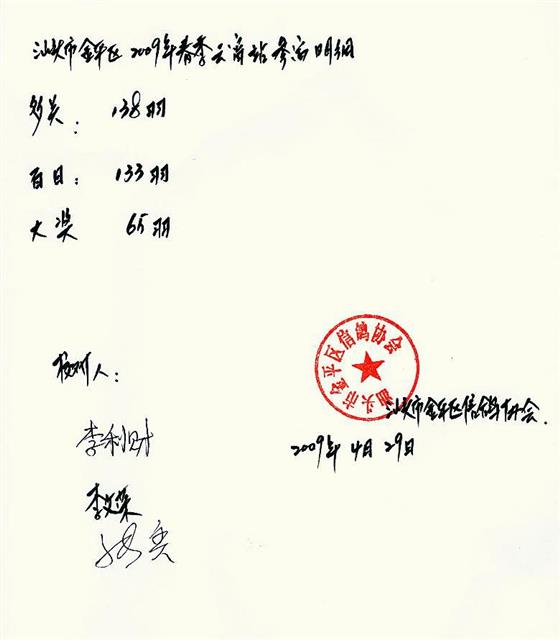 汕头市金平区2009年春季云霄站参赛明细
多关： 138羽
百日： 133羽
大奖 65羽
校对人：
汕头市金平区信鸽协会
汕头市金平区信鸽协会.
李利财
2009年4月29日
李文荣